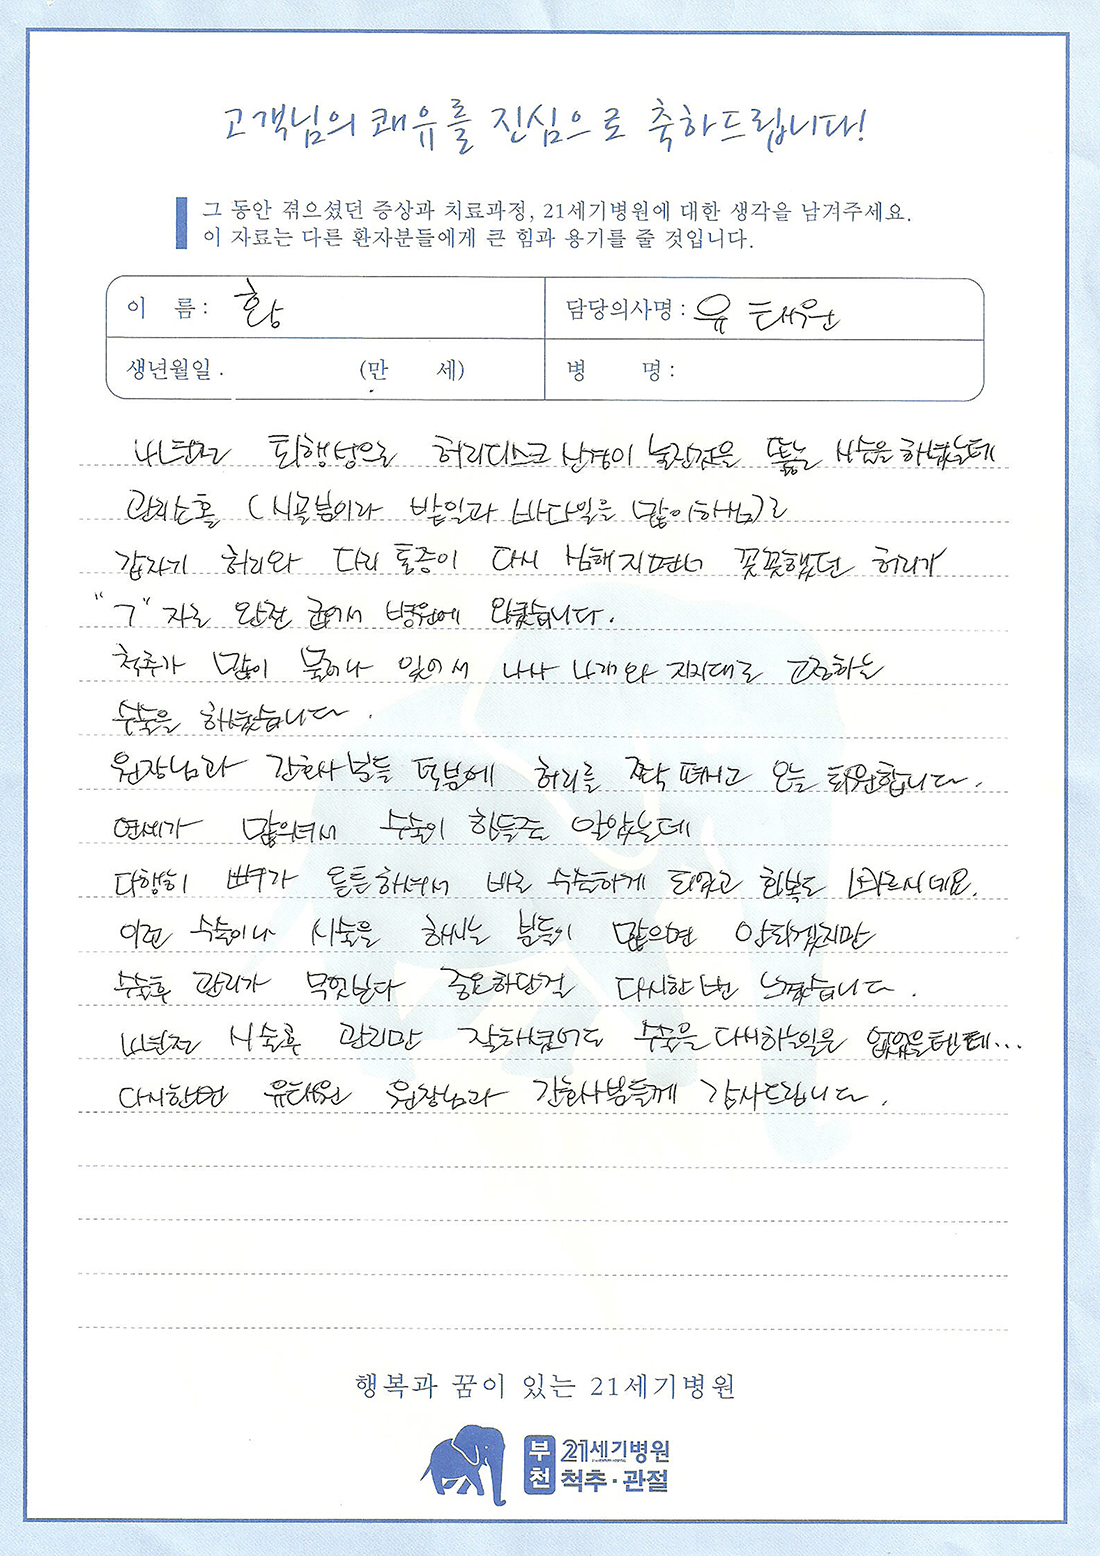 고객님의 쾌유를 진심으로 축하드립니다!
그 동안 겪으셨던 증상과 치료과정, 21세기병원에 대한 생각을 남겨주세요.
이 자료는 다른 환자분들에게 큰 힘과 용기를 줄 것입니다.
이 름 : 황 담당의사명 : 유태원
생년월일 . (만 세) 병 명 :
년전 퇴행성으로 허리디스크 신경이 눌린것을 뚫는 시술을 하셨는데
관리소홀 (시골분이라 밭일과 바다일을 많이하심)로
갑자기 허리와 다리 통증이 다시 심해지면서 꼿꼿했던 허리가
"ㄱ"자로 완전 굽어서 병원에 왔었습니다.
척추가 많이 있어서 나사 4개와 지지대로 고정하는
수술을 하셨습니다.
원장님과 간호사분들 덕분에 허리를 쫙 펴시고 오늘 퇴원합니다.
연세가 많으셔서 수술이 힘들줄 알았는데
다행히 뼈가 튼튼하셔서 바로 수술하게 되었고 회복도 빠르시네요.
이런 수술이나 시술을 하시는 분들이 많으면 안되겠지만
수술후 관리가 무엇보다 중요하단걸 다시한번 느꼈습니다.
년전 시술후 관리만 잘하셨어도 수술을 다시하는일은 없었을텐데...
다시한번 유태원 원장님과 간호사분들께 감사드립니다.
행복과 꿈이 있는 21세기병원
부천 21세기병원
척추·관절